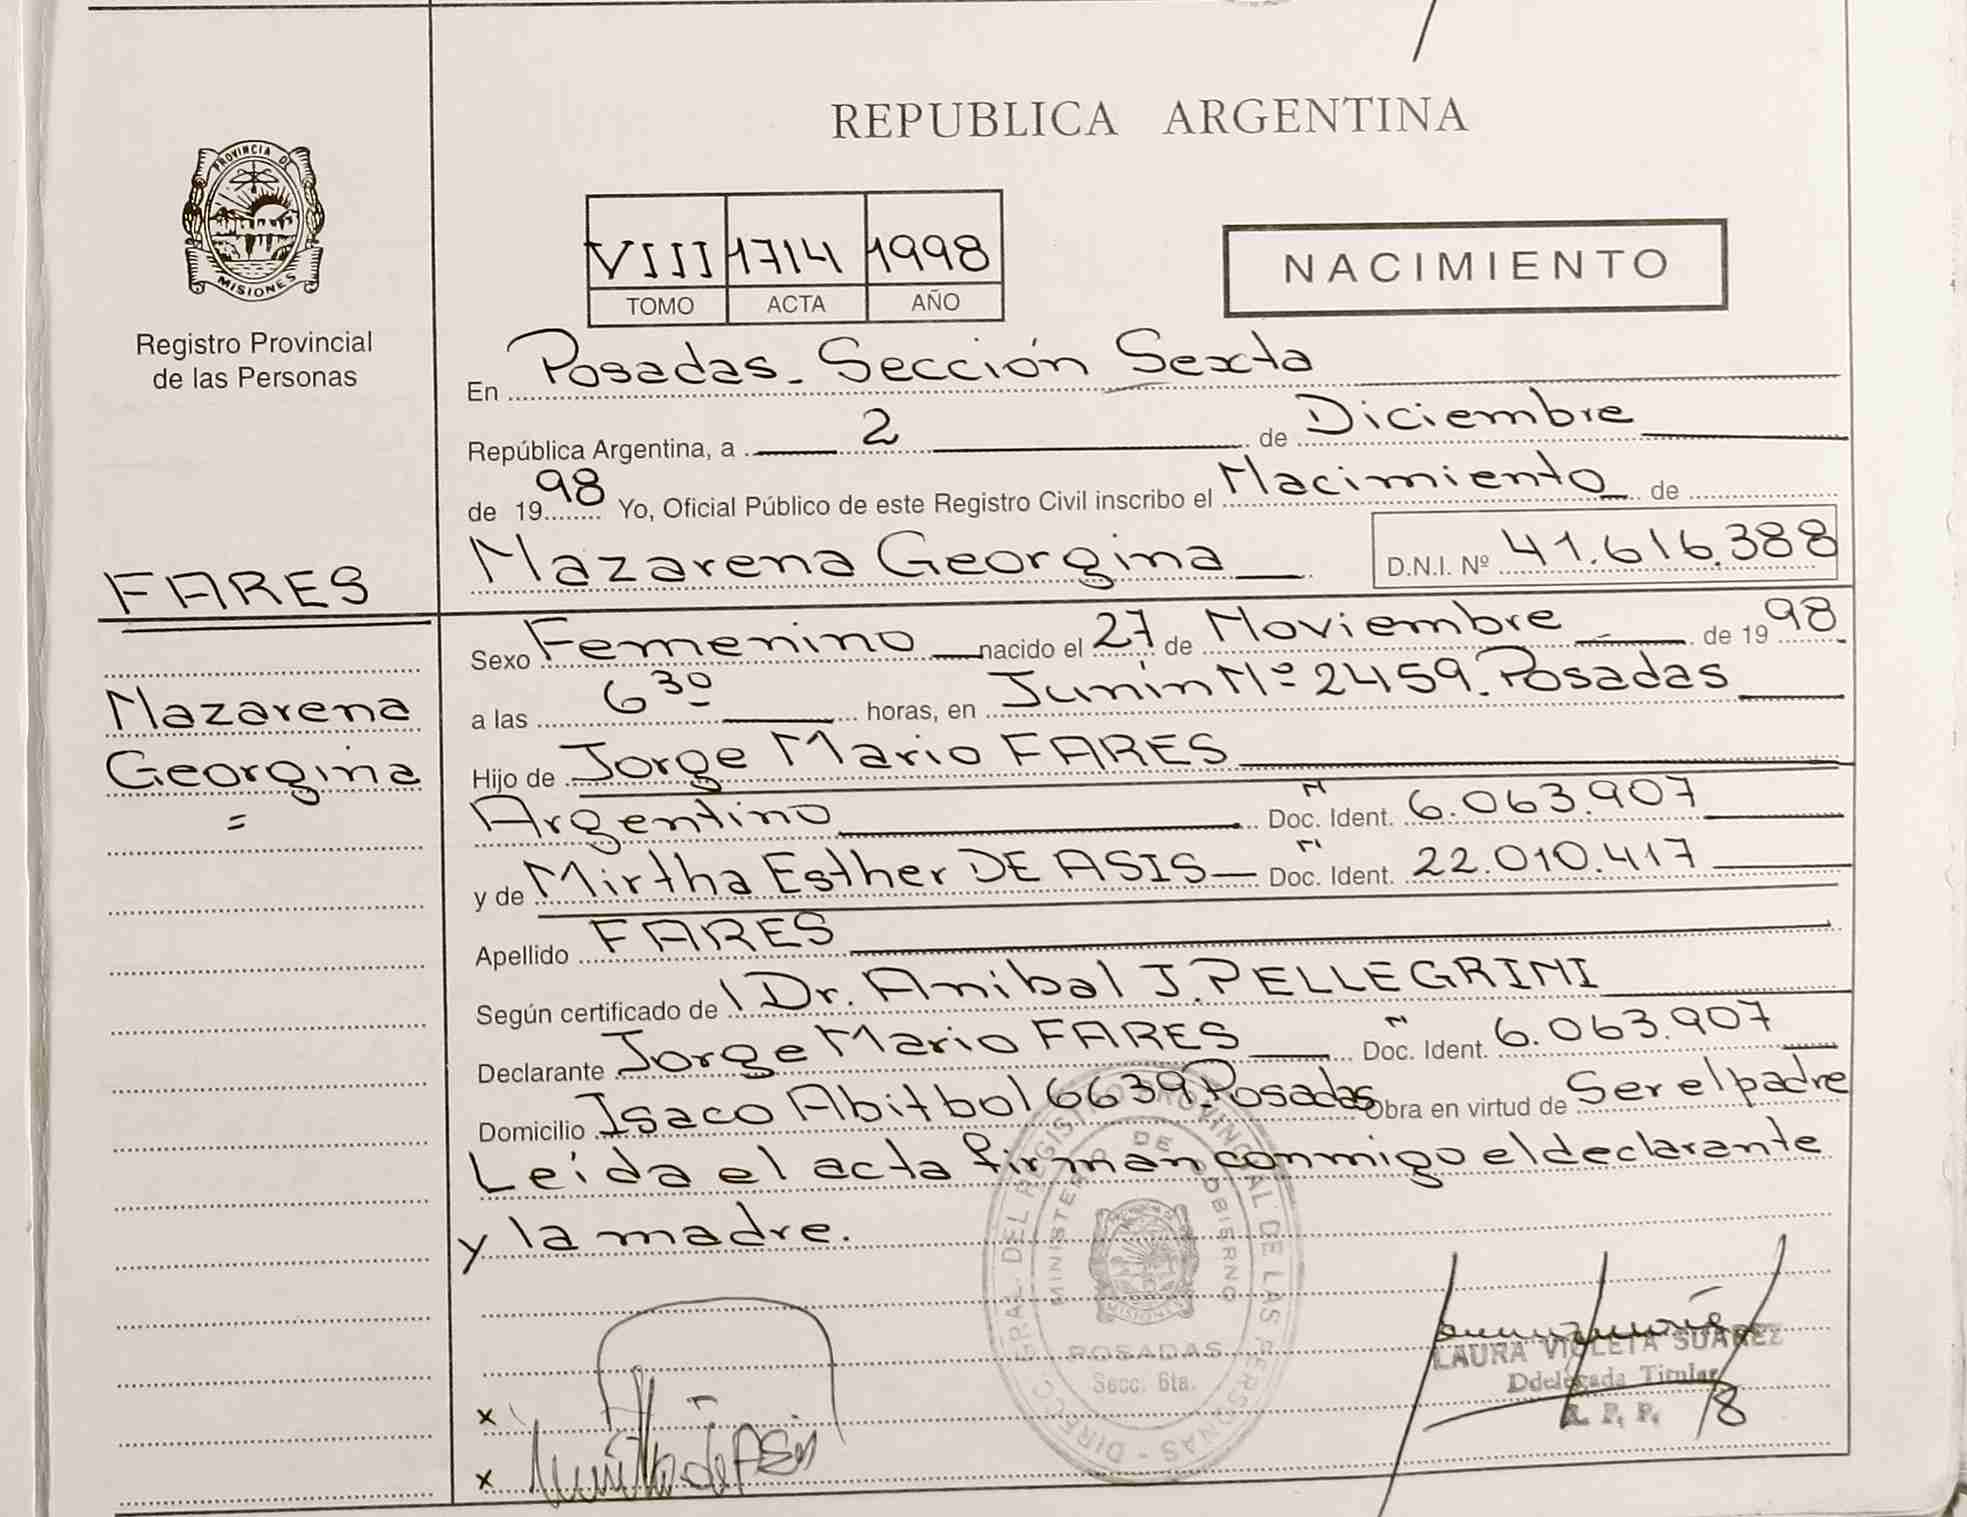 REPUBLICA ARGENTINA
PROVINCIA DE
MISIONES
Registro Provincial
de las Personas
VIII 1714 1998
TOMO ACTA AÑO
NACIMIENTO
En Posadas - Sección Sexta
República Argentina, a 2 de Diciembre
de 1998 Yo, Oficial Público de este Registro Civil inscribo el Nacimiento de
Nazarena Georgina D.N.I. Nº 41.616.388
FARES
Nazarena
Georgina
=
Sexo Femenino nacido el 27 de Noviembre de 1998
a las 6 30 horas, en Junín Nº 2459 - Posadas
Hijo de Jorge Mario FARES
Argentino Doc. Ident. N 6.063.907
y de Mirtha Esther DE ASIS Doc. Ident. N 22.010.417
Apellido FARES
Según certificado de l Dr. Anibal J. PELLEGRINI
Declarante Jorge Mario FARES Doc. Ident. N 6.063.907
Domicilio Isaco Abitbol 6639. Posadas Obra en virtud de Ser el padre
Leída el acta firman conmigo el declarante
y la madre.
DIRECC. GRAL. DEL REGISTRO PROVINCIAL DE LAS PERSONAS
MINISTERIO DE GOBIERNO
MISIONES
POSADAS
Secc. 6ta.
LAURA VIOLETA SUAREZ
Ddelegada Titular
R. P. P.
x
x